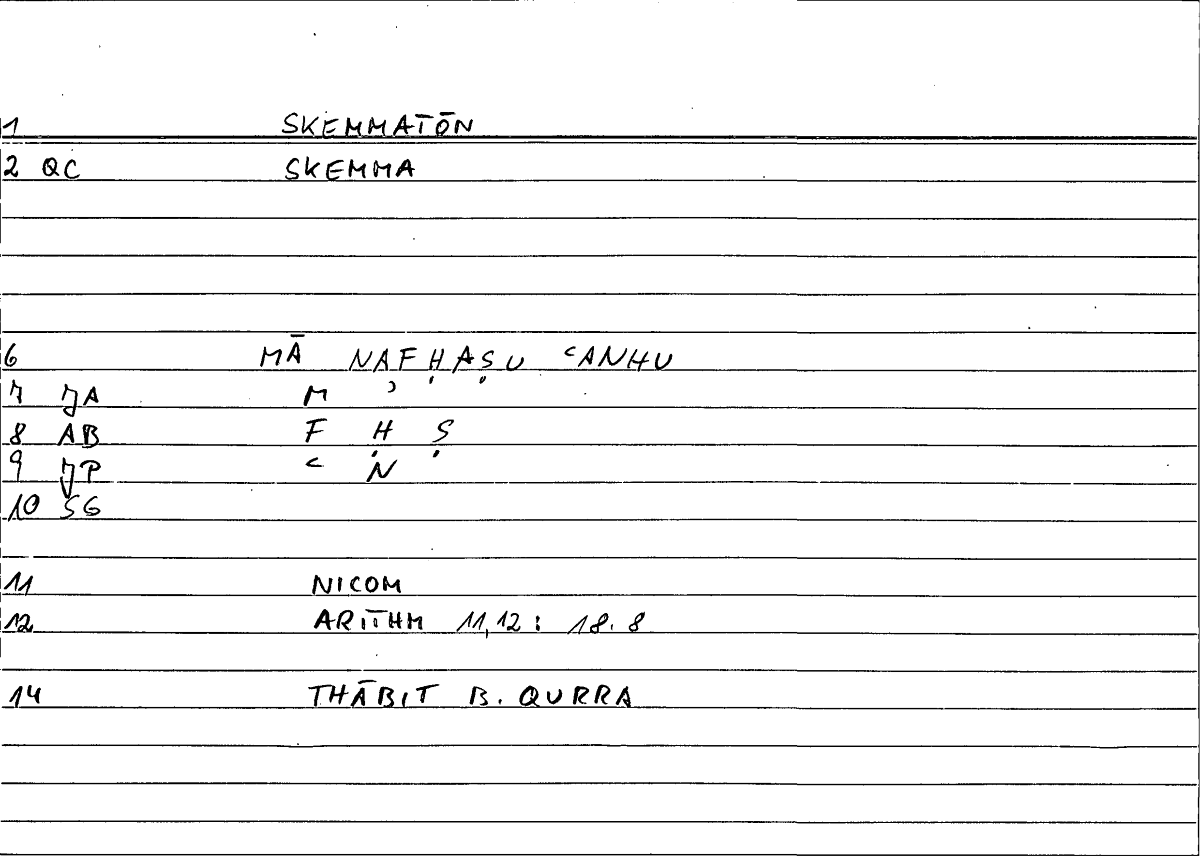 1 SKEMMATŌN
2 QC SKEMMA
6 MĀ NAFḤAṢU ʿANHU
7 JA M ʾ
8 AB F Ḥ Ṣ
9 JP ʿ N
10 SG
11 NICOM
12 ARITHM 11,12: 18.8
14 THĀBIT B. QURRA